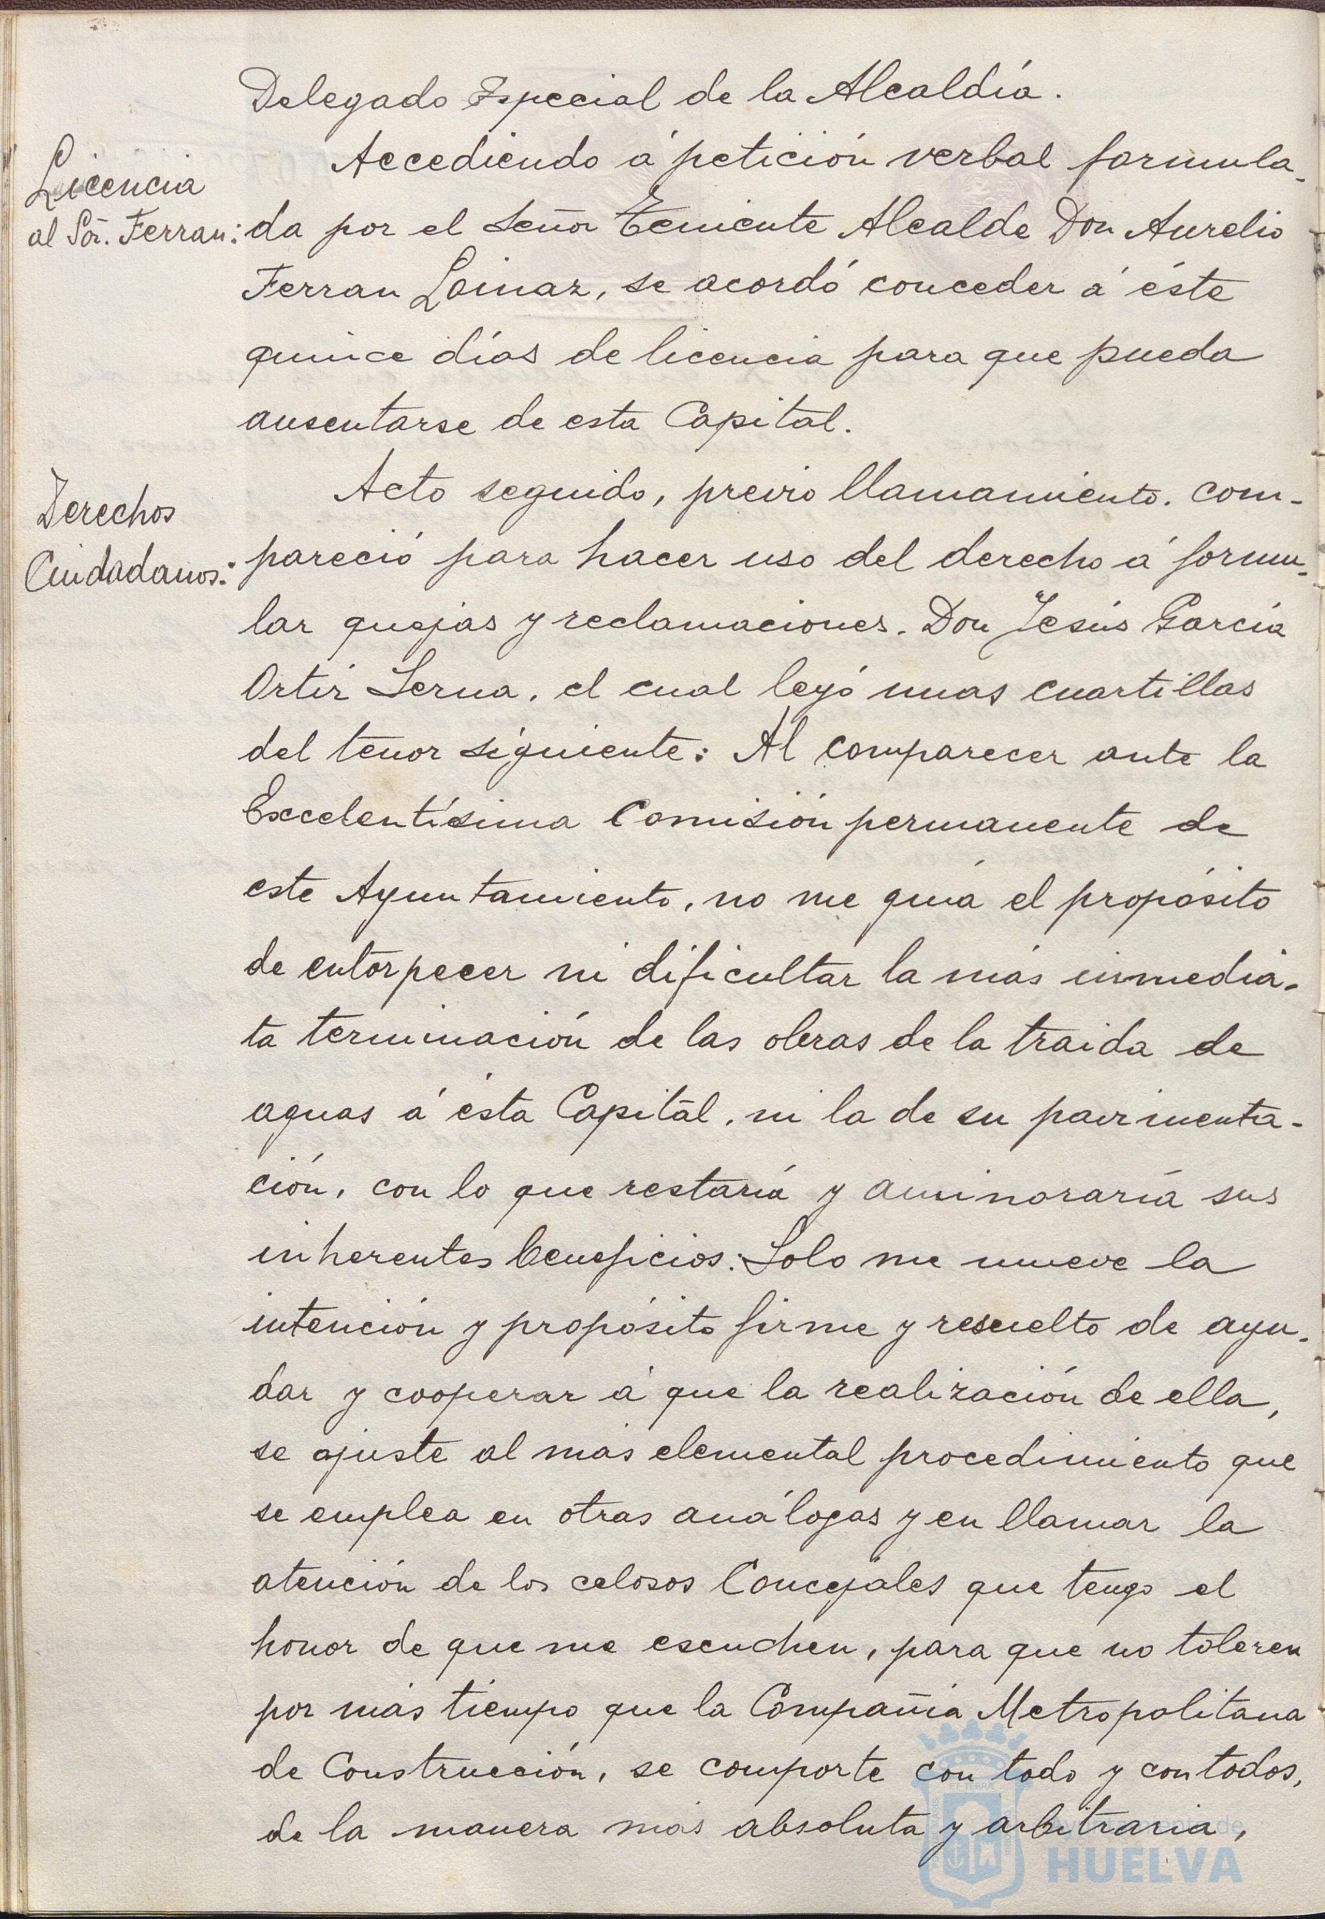 Delegado Especial de la Alcaldía.
Licencia
al Sór. Ferran:
Accediendo á petición verbal formula-
da por el Señor Teniente Alcalde Don Aurelio
Ferran Loinaz, se acordó conceder á éste
quince días de licencia para que pueda
ausentarse de esta Capital.
Derechos
Ciudadanos:
Acto seguido, previo llamamiento. com-
pareció para hacer uso del derecho á formu-
lar quejas y reclamaciones. Don Jesús García
Ortir Serna, el cual leyó unas cuartillas
del tenor siguiente: Al comparecer ante la
Excelentísima Comisión permanente de
este Ayuntamiento, no me guía el propósito
de entorpecer ni dificultar la más inmedia-
ta terminación de las obras de la traida de
aguas á ésta Capital, ni la de su pavimenta-
ción, con lo que restaría y aminoraría sus
inherentes beneficios: Solo me mueve la
intención y propósito firme y resuelto de ayu-
dar y cooperar á que la realización de ella,
se ajuste al más elemental procedimiento que
se emplea en otras análogas y en llamar la
atención de los celosos Concejales que tengo el
honor de que me escuchen, para que no toleren
por más tiempo que la Compañía Metropolitana
de Construcción, se comporte con todo y con todos,
de la manera más absoluta y arbitraria,
Ayuntamiento de
HUELVA